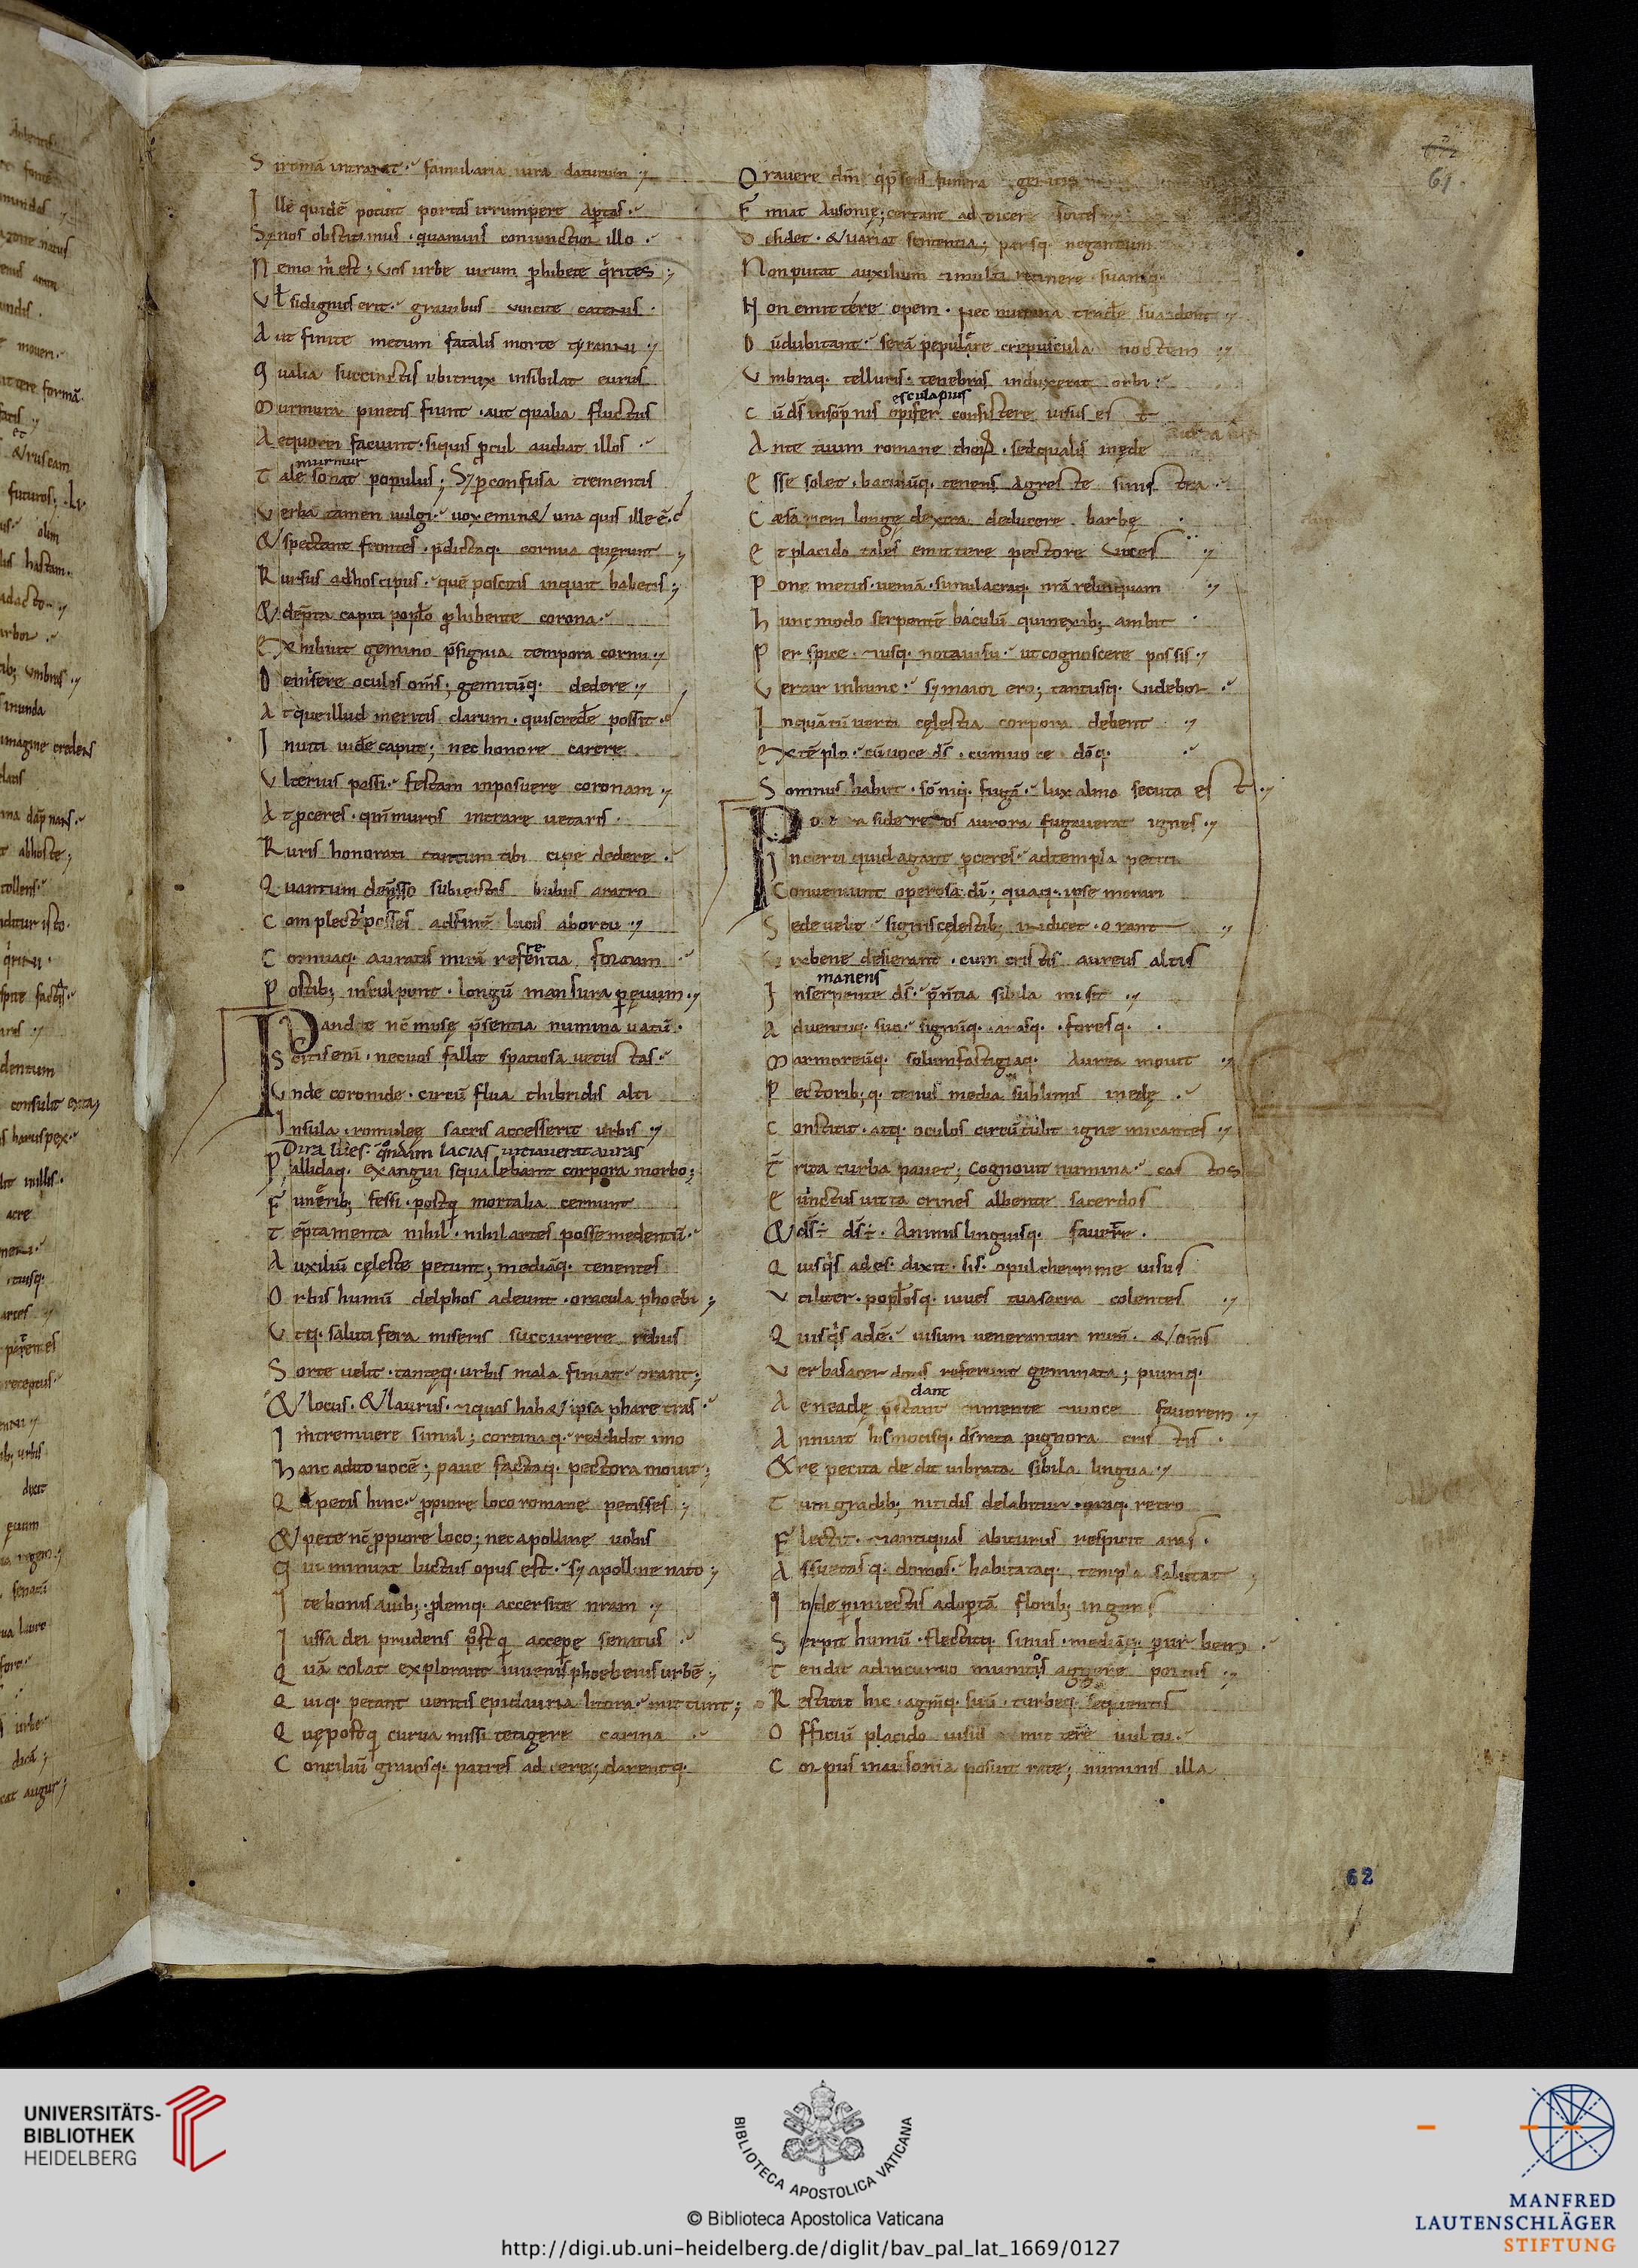 S iromā intrarat famularia iura daturum
I lle quidē potuit portas irrumpere apertas
Sȝ nos obstitimus quamuis coniunctior illo
N emo m̄ est; Vos urbe uirum ꝓhibete q̇rites
Vł si dignus erit grauibus uincite catenis
A ut finite metum fatalis morte tyranni
Q ualia succinctis ubi trux insibilat eurus
M urmura pinetis fiunt aut qualia fluctus
A equorei faciunt siquis ꝓcul audiat illos
murmur
T ale sonat populus; Sȝ ꝑ confusa trementis
V erba tamen uulgi uox emin& una quis ille ē
& spectant frontes p̄dictaq. cornua querunt
R ursus adhos cipus quē poscitis inquit habetis
& dēpta capiti popło ꝓhibente corona
E xhibuit gemino p̄signia tempora cornu
D emisere oculos om̄s; gemitūq. dedere
A tque illud meritis clarum quis credēt possit
I nuiti uidēt caput; nec honore carere
V lterius passi festam inposuere coronam
A t ꝓceres qm̄ muros intrare uetaris
R uris honorati tantum tibi cipe dedere
Q uantum dep̄sso subiectis bubus aratro
C omplecti posses ad finē lucis ab ortu
re
C ornuaq. auratis mirā referentia formam
P ostib; insculpunt longū mansura ꝑ euum
P andite nc̄ muse p̄sentia numina uatū
S citis eni nec uos fallit spatiosa uetustas
V nde coronide circū flua thibridis alti
I nsula romulee sacris accesserit urbis
Dira lues quondam lacias uitiauerat auras
P allidaq. exangui squalebant corpora morbo;
F unerib; fessi postq mortalia cernunt
T ēptamenta nihil nihil artes posse medentū
A uxiliū celeste petunt; mediāq. tenentes
O rbis humū delphos adeunt oracula phoebi
V tq. salutifera miseris succurrere rebus
S orte uelit tanteq. urbis mala finiat orant;
& locus & laurus ⁊ quas hab& ipsa pharetras
I ntremuere simul; cortinaq. reddidit imo
h anc adito uocē; paue factaq. pectora mouit;
Q d petis hinc ꝓpiore loco romane petisses;
& pete nc̄ ꝓpiore loco; nec apolline uobis
Q ui minuat luctus opus est sȝ apolline nato;
I te bonis auib; ꝓlemq. accersite nram
I ussa dei prudens postq accepe senatus
Q uā colat explorant iuuenis phoebeius urbē
Q uiq. petant uentis epidauria litora mittunt;
Q ue postq curua missi tetigere carina
C onciliū graiosq. patres adiere; darentq.
O rauere dm̄ qp̄sens funera gentis
F iniat Ausonie; certant ad dicere sortes
D isidet & uariat sententia; parsq. negandum
N on putat auxilium ⁊ multi retinere suamq.
N on emittere opem nec numina tradē suadent
D ū dubitant serā pepulere crepuscula noctem
V mbraq. telluris tenebras induxerat orbi
esculapius
C ū ds̄ in sōpnis opifer consistere uisus est
A nte tuum romane thorū sed qualis in ede
E sse solet baculūq. tenens agreste sinistra
C æsariem longe dextra deducere barbe
E t placido tales emittere pectore uoces
P one metus ueniā simulacraq. nrā relinquam
h unc modo serpentē baculū qui nexib; ambit
P erspice ⁊ usq. nota uisu ut cognoscere possis
V ertar in hunc sȝ maior ero; tantusq. uidebor
I n quātū uerti celestia corpora debent
E xtēplo cū uoce ds̄ cum uoce dōq.
S omnus habiit sōniq. fugā lux alma secuta est
P ostera sidereos aurora fugauerat ignes
I ncerti quid agant ꝓceres ad templa petiti
C onueniunt operosa di; quaq. ipse morari
S ede uelit signis celestib; indicet orant
V ix bene desierant cum cristis aureus altis
manens
I n serpente ds̄ p̄nītia sibila misit
A duentuq. suo signūq. arasq. foresq.
M armoreūq. solum fastigiaq. aurea mouit
P ectorib;q. tenus media sublimis in ede
C onstitit atq. oculos circūtulit igne micantes
T̄ rita turba pauet; Cognouit numina castos
E uinctus uitta crines albente sacerdos
& ds̄ ÷ ds̄ ÷ Animis linguisq. fauete
Q uisq̇s ades dixit sis o pulcherrime uisus
V tiliter poplosq. iuues tua sacra colentes
Q uisq̇s adē uisum uenerantur num̄ & om̄s
V erba sacerdotis referunt geminata; piumq.
dant
A eneade p̄stant ⁊ mente ⁊ uoce fauorem
A nnuit his motisq. ds̄ rata pignora cristis
& repetita dedit uibrata sibila lingua
T um gradib; nitidis delabitur oraq. retro
F lectit ⁊ antiquas abiturus respicit aras
A ssuetasq. domos habitataq. templa salutat
I nde ꝑ iniectis adoptā florib; ingens
S erpit humū flectitq. sinus mediāq. ꝑ urbem
T endit ad incuruo munitos aggere portus
R estitit hic agmq. suū turbeq. sequentis
O fficiū placido uisus mittere uultu
C orpus in ausonia posuit rate; numinis illa
61
62
UNIVERSITÄTS-
BIBLIOTHEK
HEIDELBERG
BIBLIOTECA APOSTOLICA VATICANA
© Biblioteca Apostolica Vaticana
http://digi.ub.uni-heidelberg.de/diglit/bav_pal_lat_1669/0127
MANFRED
LAUTENSCHLÄGER
STIFTUNG